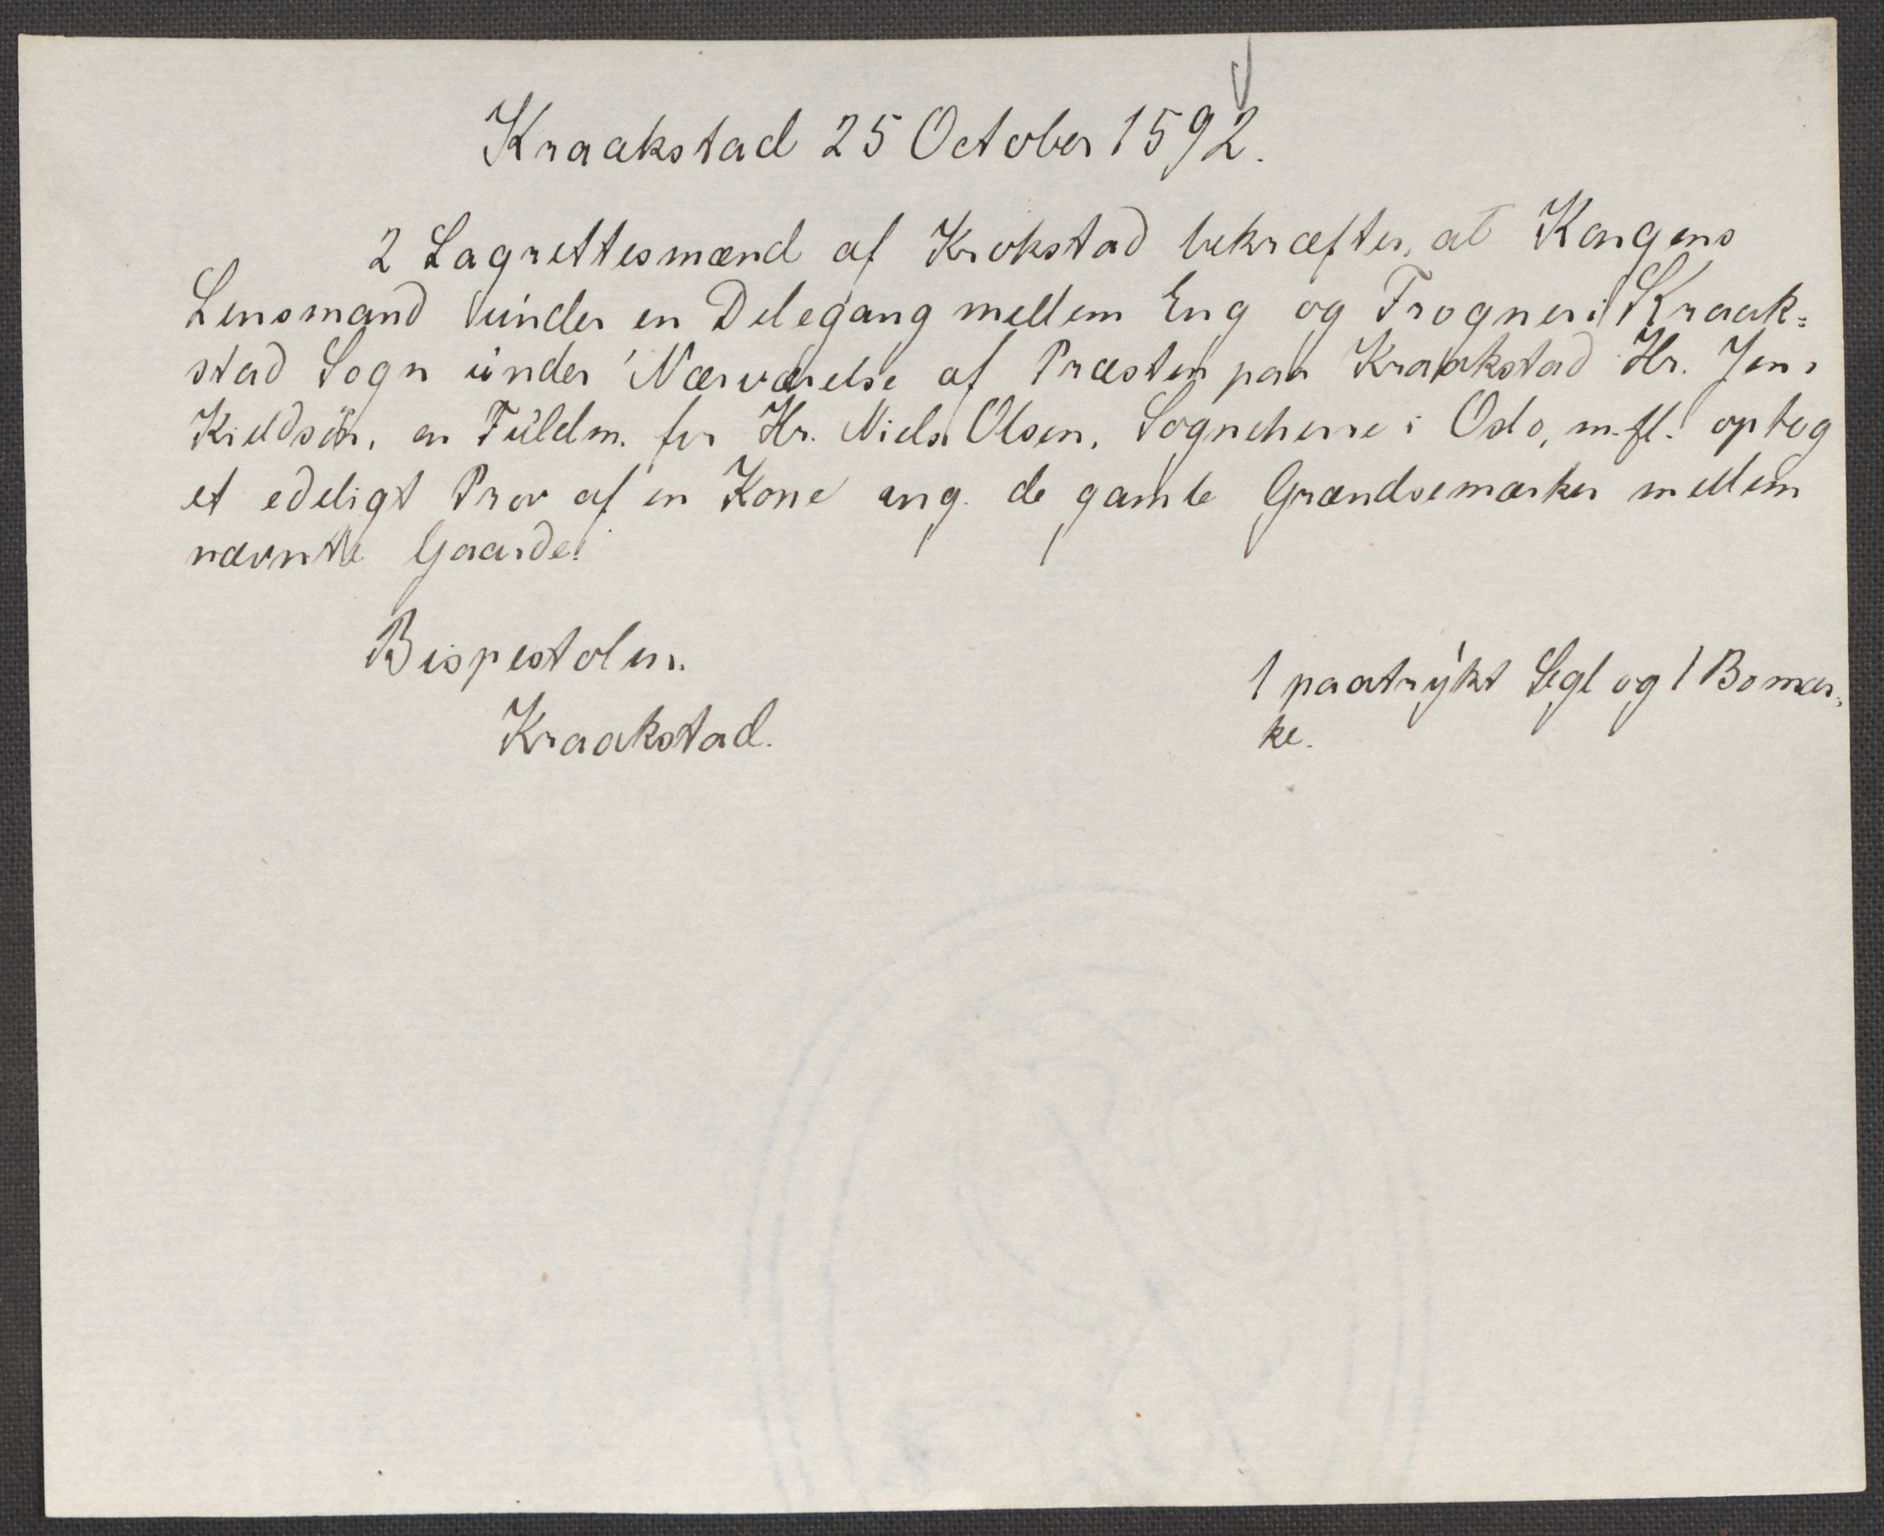 Kraakstad 25 October 1592.
2 Lagrettesmænd af Krokstad bekræfter, at Kongens
Lensmand under en Delegang mellem Eng og Trogner i Kraak=
stad Sogn under Nærværelse af Præsten paa Kraakstad Hr. Jens
Kieldsön, en Fuldm. for Hr. Niels Olsen, Sogneherre i Oslo, m. fl. optog
et edeligt Prov af en Kone ang. de gamle Grændsemærker mellem
nævnte Gaarde.
Bispestolen.
1 paatrykt Segl og 1 Bomær=
ke.
Kraakstad.